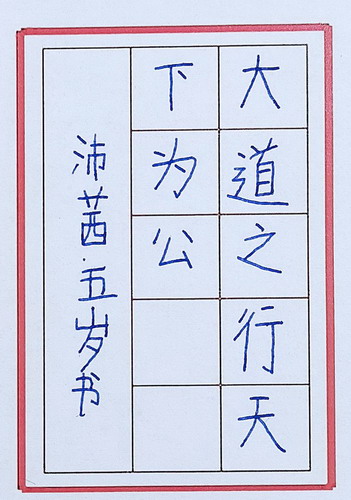 大道之行天
下为公
沛茜·五岁书